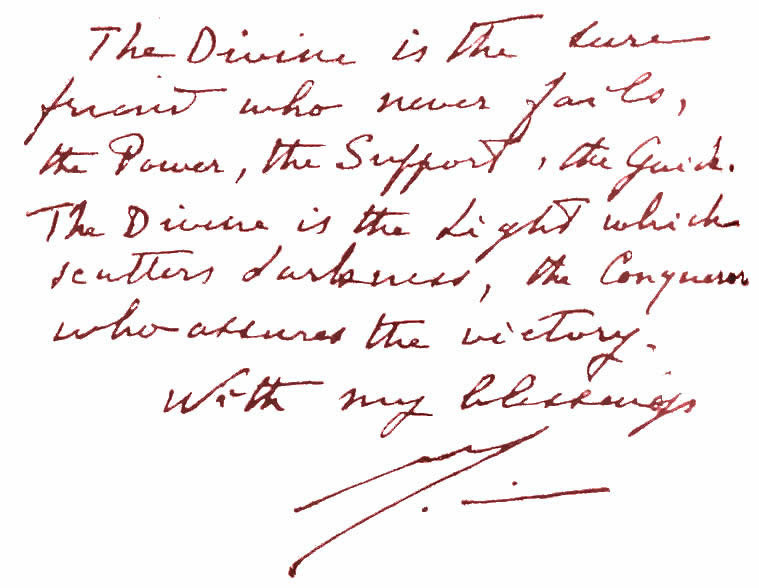 The Divine is the sure
friend who never fails,
the Power, the Support, the Guide.
The Divine is the Light which
scatters darkness, the Conqueror
who assures the victory.
With my blessings